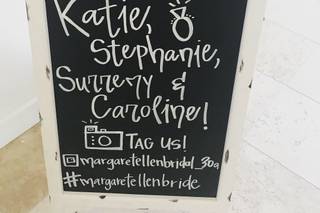 Katie,
Stephanie,
Surreny &
Caroline!
TAG US!
margaretellenbridal_30a
#margaretellenbride